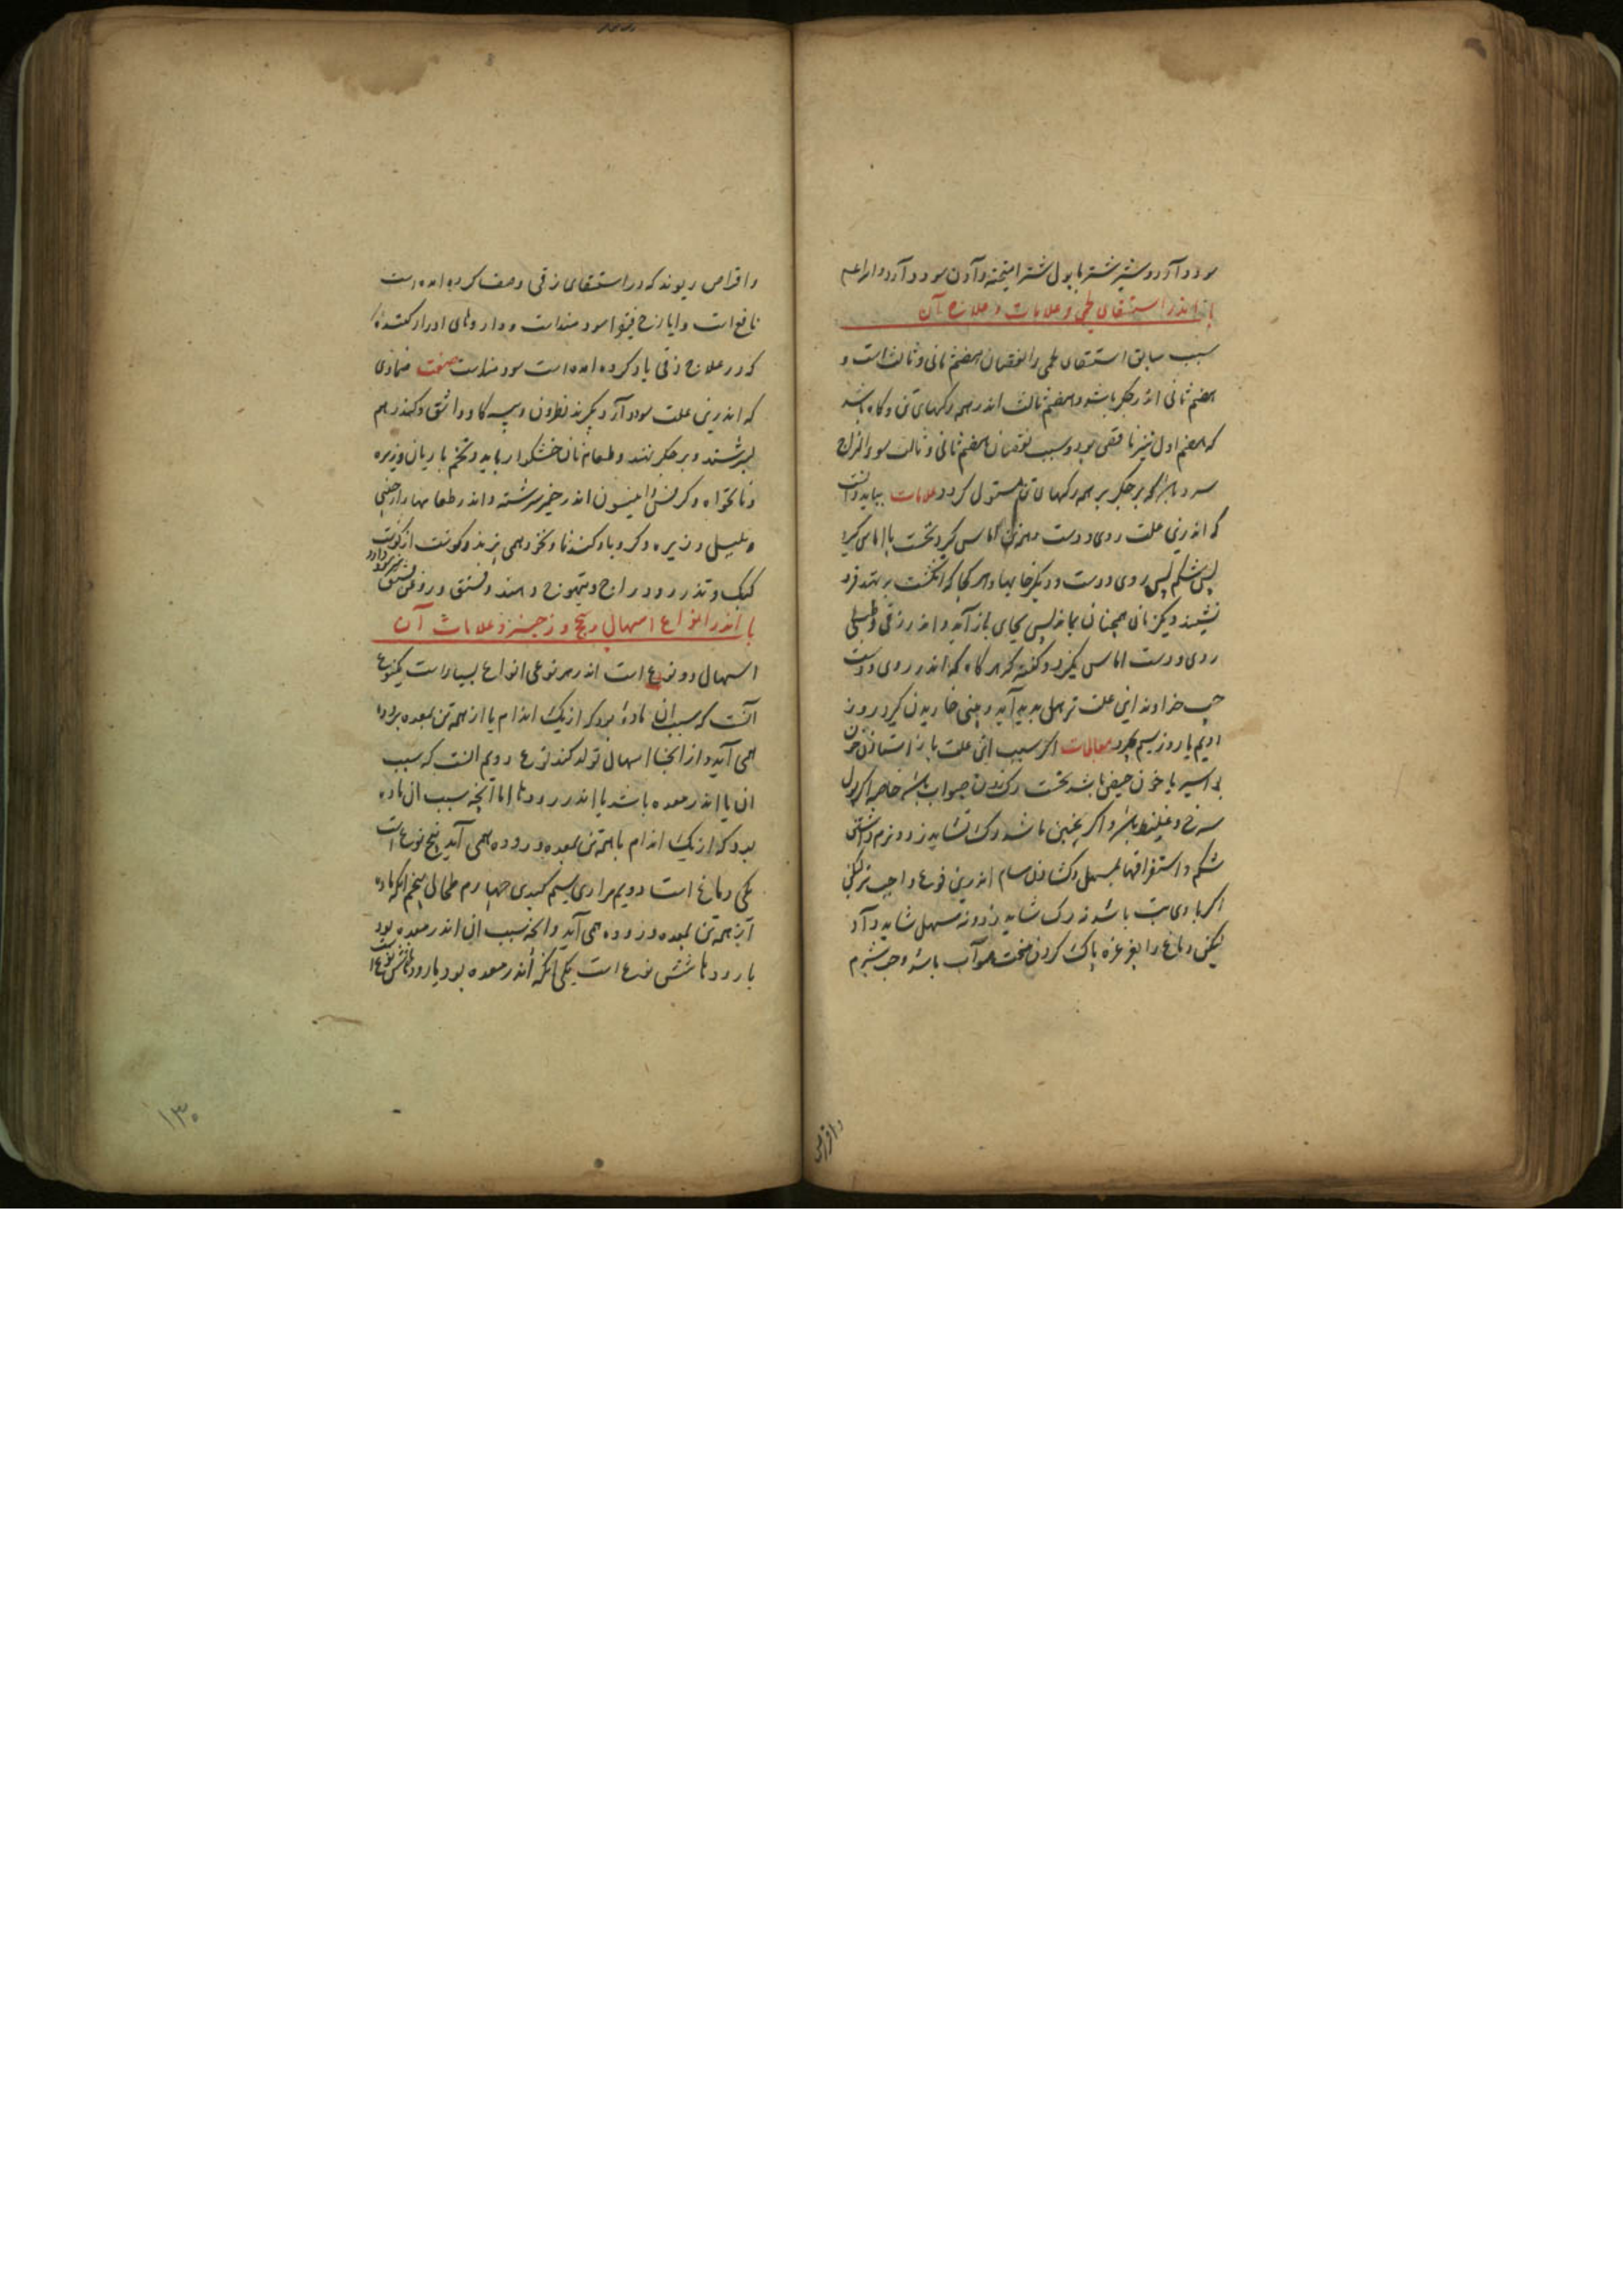 سود دارد و شیر شتر با بول شتر امیخته دادن سود دارد
باب اندر استسقای لحمی و علامات و علاج آن
سبب سابق استسقای لحمی را نقصان هضم ثانی و ثالث است و
هضم ثانی اندر جگر باشد و هضم ثالث اندر همه رگهای تن و گاه باشد
که هضم اول نیز ناقص بود و سبب نقصان هضم ثانی و ثالث سوء المزاج
سرد باشد که بر جگر بر همه رگهای تن مستولی گردد علامات بباید دانست
که اندرین علت روی و دست و همه تن اماس گیرد نخست پا اماس گیرد
پس شکم پس روی و دست و دیگر خایها و هر کجا که انگشت بر نهند فرو
نشیند و یکزمان همچنان بماند پس بجای باز آید و اندر زقی و طبلی
روی و دست اماس نگیرد و گفته که هر گاه که اندر روی و دست
چپ خداوند این علت ترهلی پدید آید و بینی خاریدن گیرد روز
دویم یا روز سیم بمیرد معالجات اگر سبب این علت باز استادن خون
بواسیر یا خون حیض باشد نخست رگ زدن صواب باشد خاصه اگر بول
سرخ و غلیظ باشد و اگر چنین باشد رگ نشاید زد و نرم داشتن
شکم و استفراغها بمسهل و گشادن مسام اندرین نوع واجب تر لیکن
اگر با وی تب باشد نه رگ شاید زد و نه مسهل شاید داد
لیکن دماغ را بغرغره پاک کردن سخت صواب باشد و حب شبرم
و اقراص
و اقراص ریوند که در استسقای زقی وصف کرده امده است
نافع است و ایارج فیقرا سودمند است و داروهای ادرار کننده
که در علاج زقی یاد کرده امده است سودمند است صفت ضمادی
که اندرین علت سود دارد بگیرند نطرون و پیه گاو و اشق و کندر بهم
بسرشند و بر جگر نهند و طعام نان خشکوار باید و تخم بادیان و زیره
و نانخواه و کرفس و انیسون اندر خمیر سرشته و اندر طعامها دارچینی
و پلپل و زیره و کرویا و گندنا و نخود همی پزند و گوشت از گوشت
کبک و تذرو و دراج و تیهو و فستق و روغن فستق سود دارد
باب اندر انواع اسهال و سحج و زحیر و علامات آن
اسهال دو نوع است اندر هر نوعی انواع بسیار است یکنوع
آنست که سبب ان مادۀ بود که از یک اندام یا از همه تن بمعده و روده
همی آید و از انجا اسهال تولد کند نوع دویم انست که سبب
ان یا اندر معده باشد یا اندر رودها اما آنچه سبب ان ماده
بود که از یک اندام یا همه تن بمعده و روده همی آید پنج نوع است
یکی دماغی است دویم مراری سیم کبدی چهارم طحالی پنجم انکه ماده
از همه تن بمعده و روده همی آید و انچه سبب ان اندر معده بود
یا رودها شش نوع است یکی انکه اندر معده بود
۱۳۰